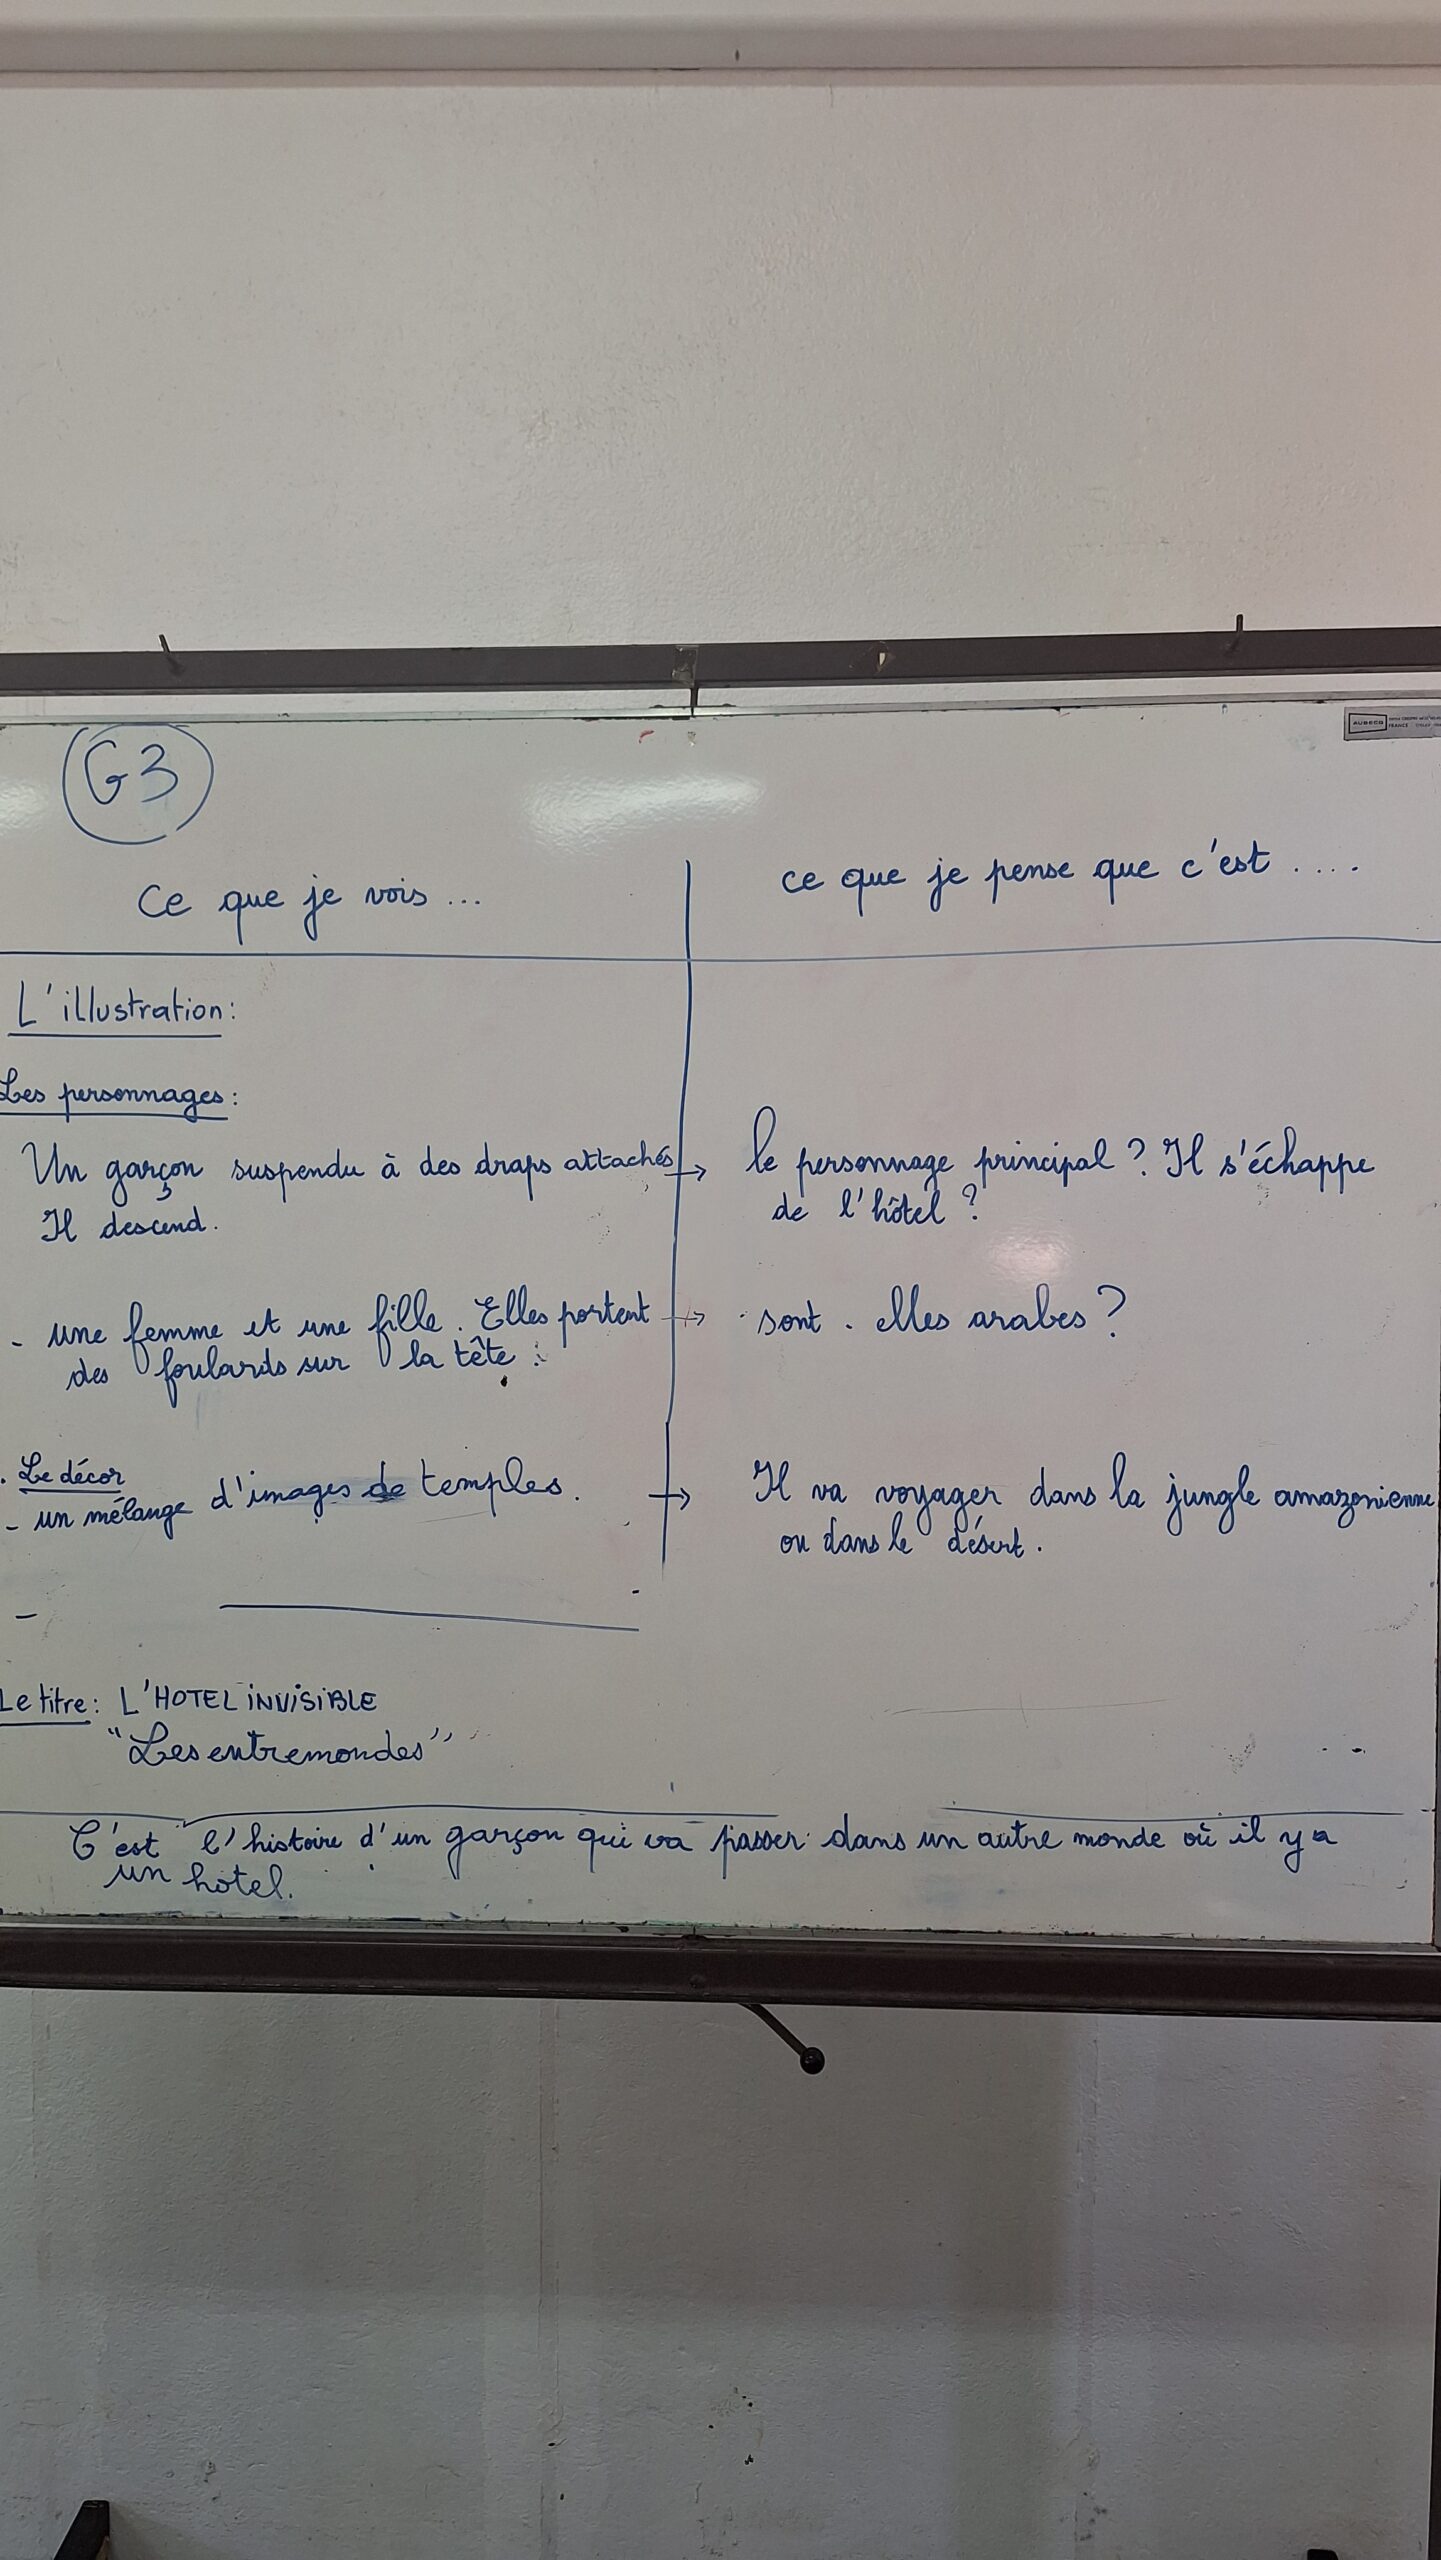 G3
AUBECQ
FRANCE
Ce que je vois ...
ce que je pense que c'est ....
L'illustration :
Les personnages :
Un garçon suspendu à des draps attachés →
Il descend.
le personnage principal ? Il s'échappe
de l'hôtel ?
- une femme et une fille. Elles portent →
des foulards sur la tête.
sont - elles arabes ?
. Le décor
- un mélange d'images de temples. →
Il va voyager dans la jungle amazonienne
ou dans le désert.
-
Le titre : L'HOTEL INVISIBLE
"Les entremondes"
C'est l'histoire d'un garçon qui va passer dans un autre monde où il y a
un hôtel.